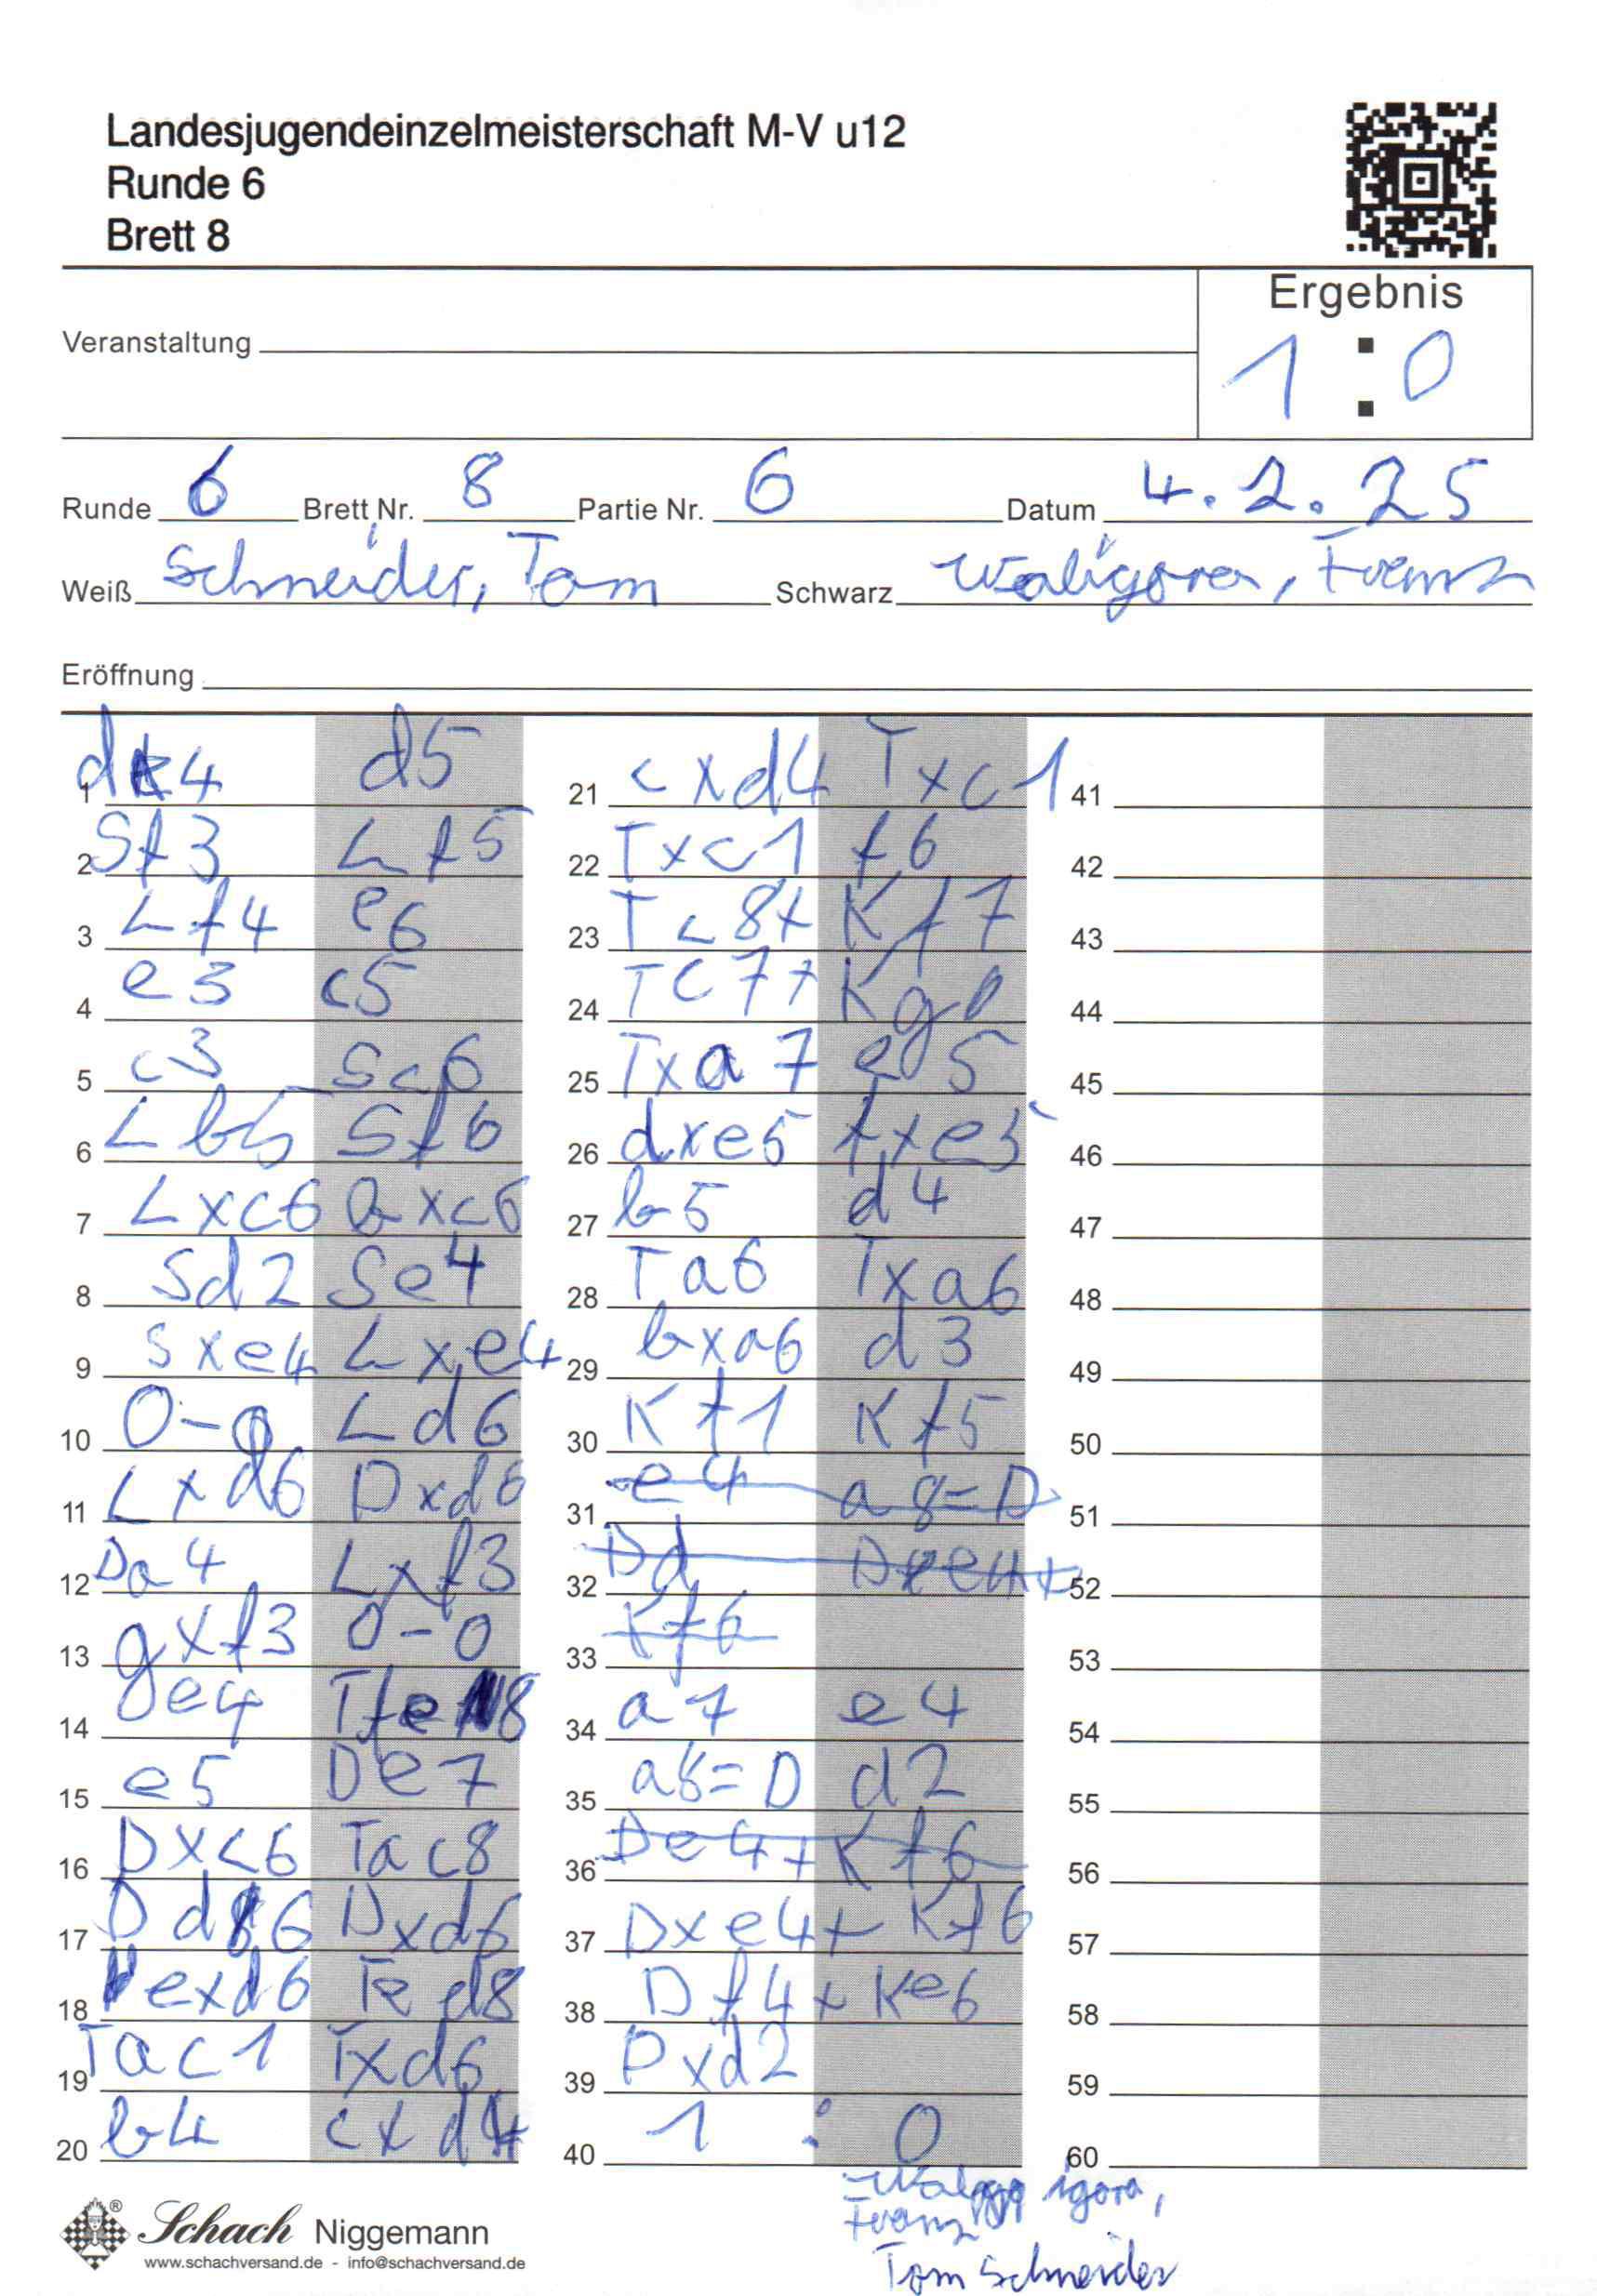 Landesjugendeinzelmeisterschaft M-V u12
Runde 6
Brett 8
Ergebnis
1 : 0
Veranstaltung
Runde 6 Brett Nr. 8 Partie Nr. 6 Datum 4.2.25
Weiß Schneider, Tom Schwarz Waligora, Franz
Eröffnung
1 d4 d5
2 Sf3 Lf5
3 Lf4 e6
4 e3 c5
5 c3 Sc6
6 Lb5 Sf6
7 Lxc6 bxc6
8 Sd2 Se4
9 Sxe4 Lxe4
10 0-0 Ld6
11 Lxd6 Dxd6
12 Da4 Lxf3
13 gxf3 0-0
14 e4 Tfe8
15 e5 De7
16 Dxc6 Tac8
17 Dd6 Dxd6
18 exd6 Ted8
19 Tac1 Txd6
20 b4 cxd4
21 cxd4 Txc1
22 Txc1 f6
23 Tc8+ Kf7
24 Tc7+ Kg6
25 Txa7 e5
26 dxe5 fxe5
27 b5 d4
28 Ta6 Txa6
29 bxa6 d3
30 Kf1 Kf5
31 e4 a8=D
32 Dd Dxe4+
33 Kf6
34 a7 e4
35 a8=D d2
36 De4+ Kf6
37 Dxe4+ Kf6
38 Df4+ Ke6
39 Dxd2
40 1 : 0
41
42
43
44
45
46
47
48
49
50
51
52
53
54
55
56
57
58
59
60
igora,
Franz
Tom Schneider
Schach Niggemann
www.schachversand.de - info@schachversand.de